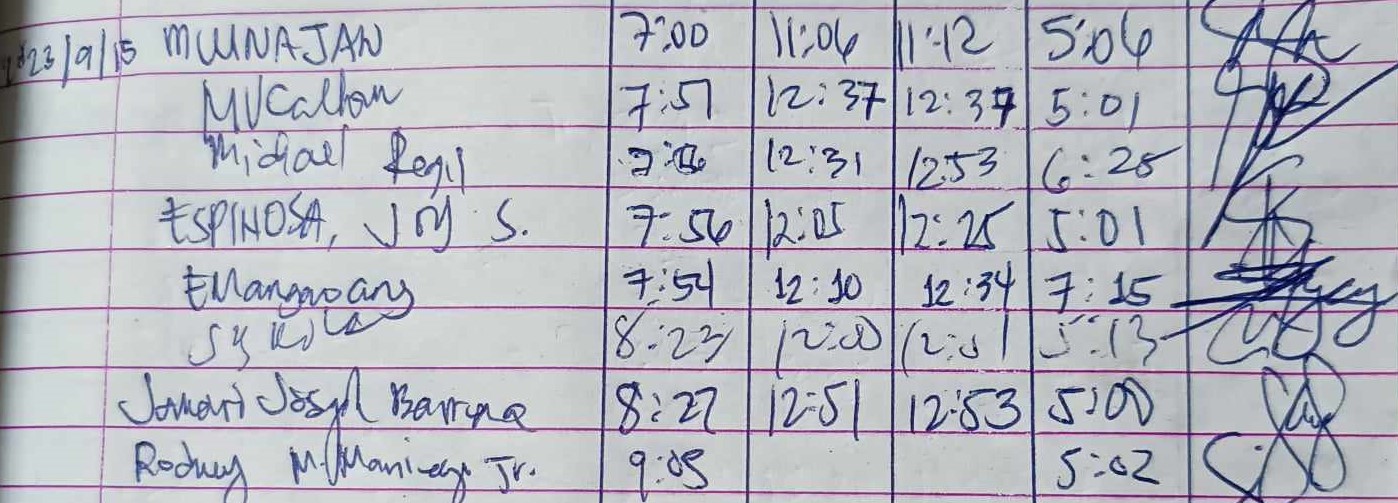 23/9/15 MUNAJAN 7:00 11:06 11:12 5:06
MVCalton 7:51 12:37 12:37 5:01
Michael Regil 12:31 12:53 6:25
ESPINOSA, JOY S. 7:56 12:05 12:25 5:01
EMangaoang 7:54 12:10 12:34 7:15
8:23 12:00 12:01 5:13
Jomari Joseph 8:27 12:51 12:53 5:00
Rodney M. Jr. 9:05 5:02